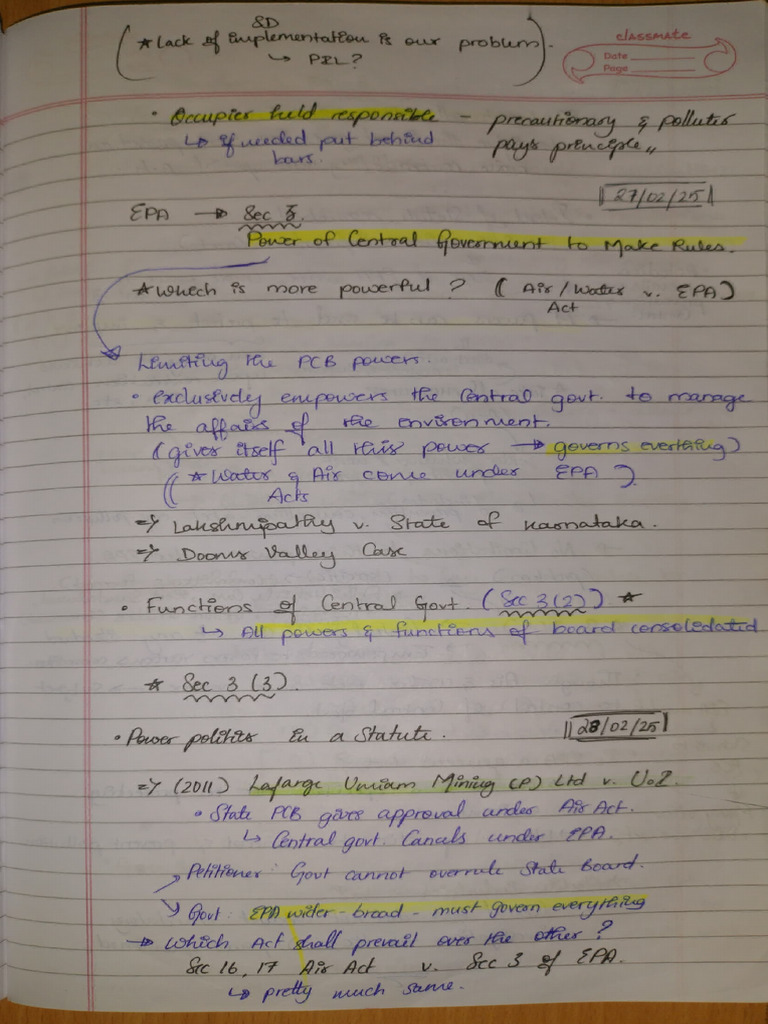 SD
(★ Lack of implementation is our problem.
↳ PIL?)
classmate
Date
Page
• Occupier held responsible – precautionary & polluter
↳ if needed put behind pays principle,,
bars.
27/02/25
EPA → Sec 3.
Power of Central Government to Make Rules.
★ Which is more powerful? (Air/Water v. EPA)
Act
Limiting the PCB powers.
• exclusively empowers the Central govt. to manage
the affairs of the environment.
(gives itself all this power → governs everthing)
(★ Water & Air come under EPA)
Acts
⇒ Lakshmipathy v. State of Karnataka.
⇒ Doonis Valley Case
• Functions of Central Govt. (Sec 3(2)) ★
↳ All powers & functions of board consolidated
★ Sec 3 (3).
• Power politics in a Statute.
28/02/25
⇒ (2011) Lafarge Umiam Mining (P) Ltd v. UoI.
• State PCB gives approval under Air Act.
↳ Central govt. Cancels under EPA.
Petitioner: Govt cannot overrule State Board.
Govt: EPA wider - broad - must govern everything
→ Which Act shall prevail over the other?
Sec 16, 17 Air Act v. Sec 3 of EPA.
↳ pretty much same.